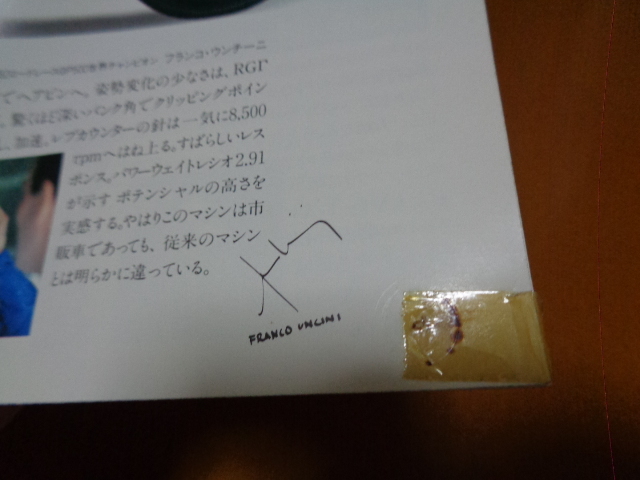 世界チャンピオン フランコ・ウンチーニ
でヘアピンへ。姿勢変化の少なさは、RGΓ
驚くほど深いバンク角でクリッピングポイン
加速。レブカウンターの針は一気に8,500
rpmへはね上る。すばらしいレス
ポンス。パワーウェイトレシオ2.91
が示す ポテンシャルの高さを
実感する。やはりこのマシンは市
販車であっても、従来のマシン
とは明らかに違っている。
FRANCO UNCINI